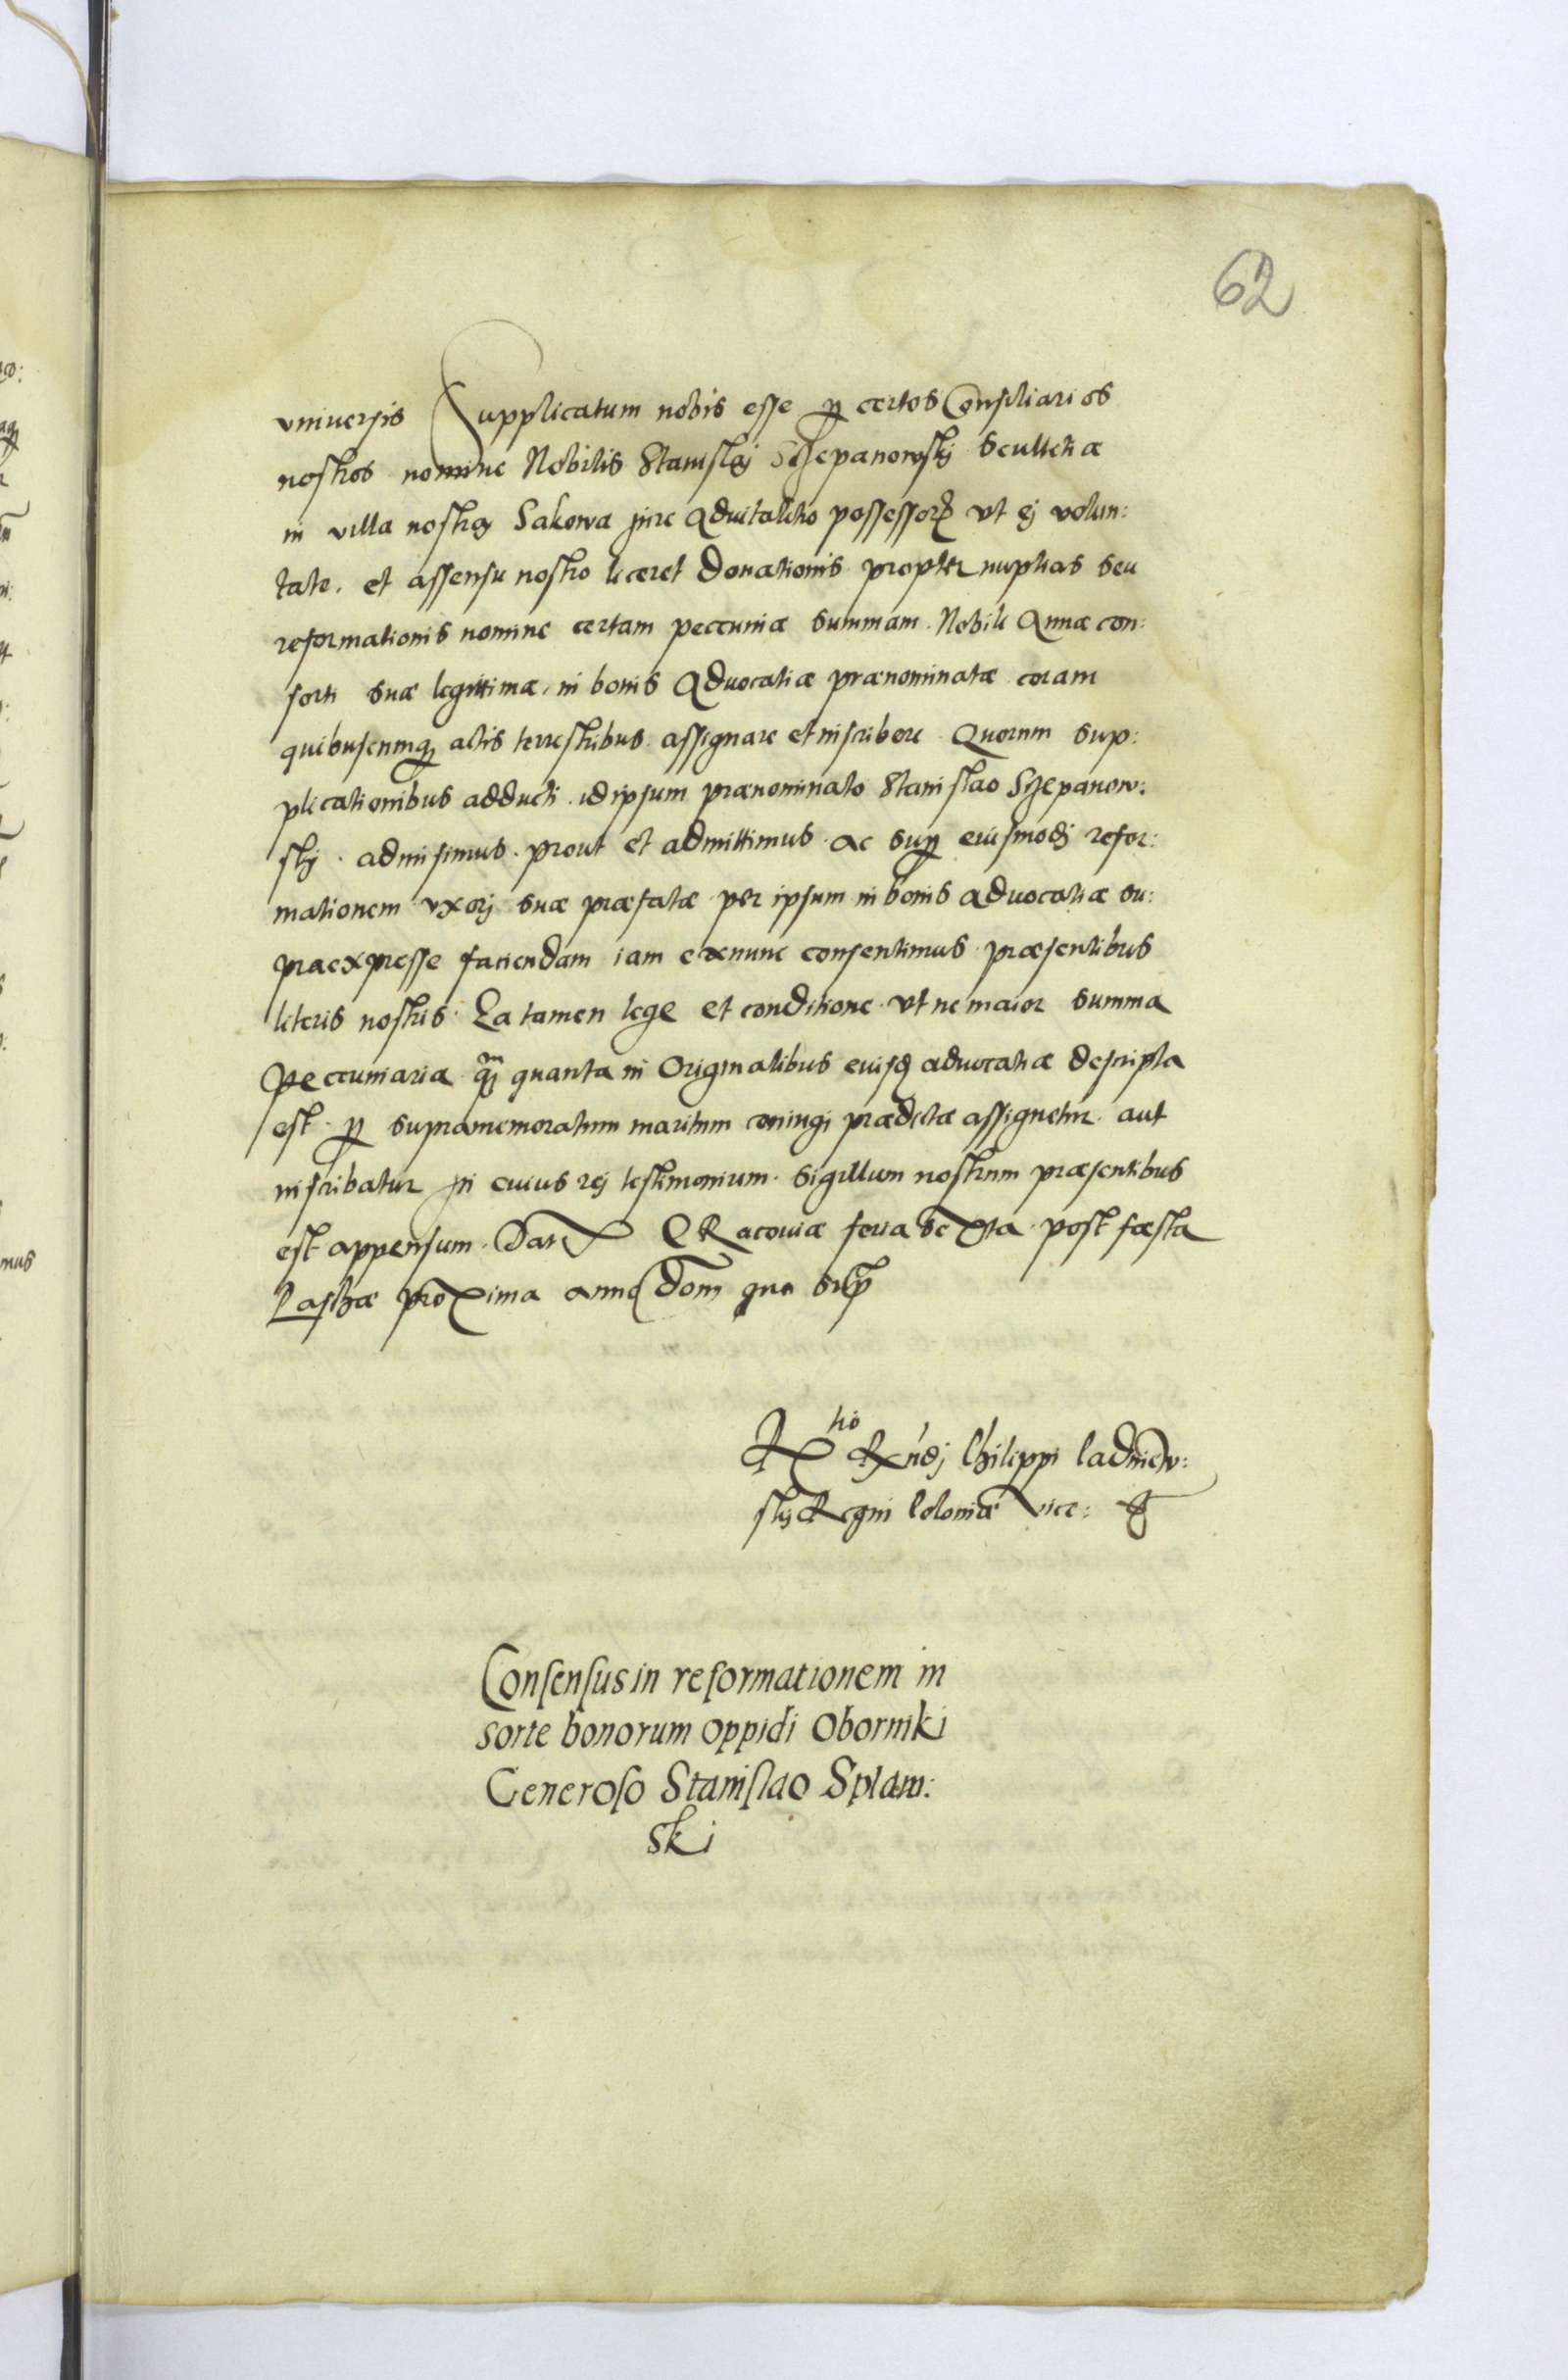 62
vniuersis Supplicatum nobis esse p certos Consiliarios
nostros nomine Nobilis Stanislaj Szczepanowskj Scultetiæ
in villa nostra Sakowa jure aduitalitio possessoris vt ej volun:
tate. et assensu nostro liceret donationis propter nuptias seu
reformationis nomine certam peccuniæ summam. Nobili Annæ con:
sorti suæ legittimæ. in bonis Aduocatiæ prænominatæ coram
quibuscunq actis terrestribus. assignare et inscribere Quorum sup:
plicationibus adducti. idipsum prænominato Stanislao Szczepanow:
skj. admisimus. prout et admittimus. ac sup eiusmodj refor:
mationem vxorj suæ præfatæ per ipsum in bonis aduocatiæ su:
praexpresse faciendam iam exnunc consentimus præsentibus
literis nostris. Ea tamen lege et conditione. vt ne maior summa
peccuniaria qm quanta in Originalibus euisd aduocatiæ descripta
est. p supramemoratum maritum coniugi prædictæ assignetur. aut
inscribatur In cuius rej testimonium. Sigillum nostrum præsentibus
est appensum. Dat CRacouiæ feria sexta. post fæsta
Paschæ proxima anno Dom quo sup
Rtio Rndj Philippi Padniew:
skj Regni Poloniæ Vice:
Consensus in reformationem in
sorte bonorum oppidi Oborniki
Generoso Stanislao Splaw:
ski